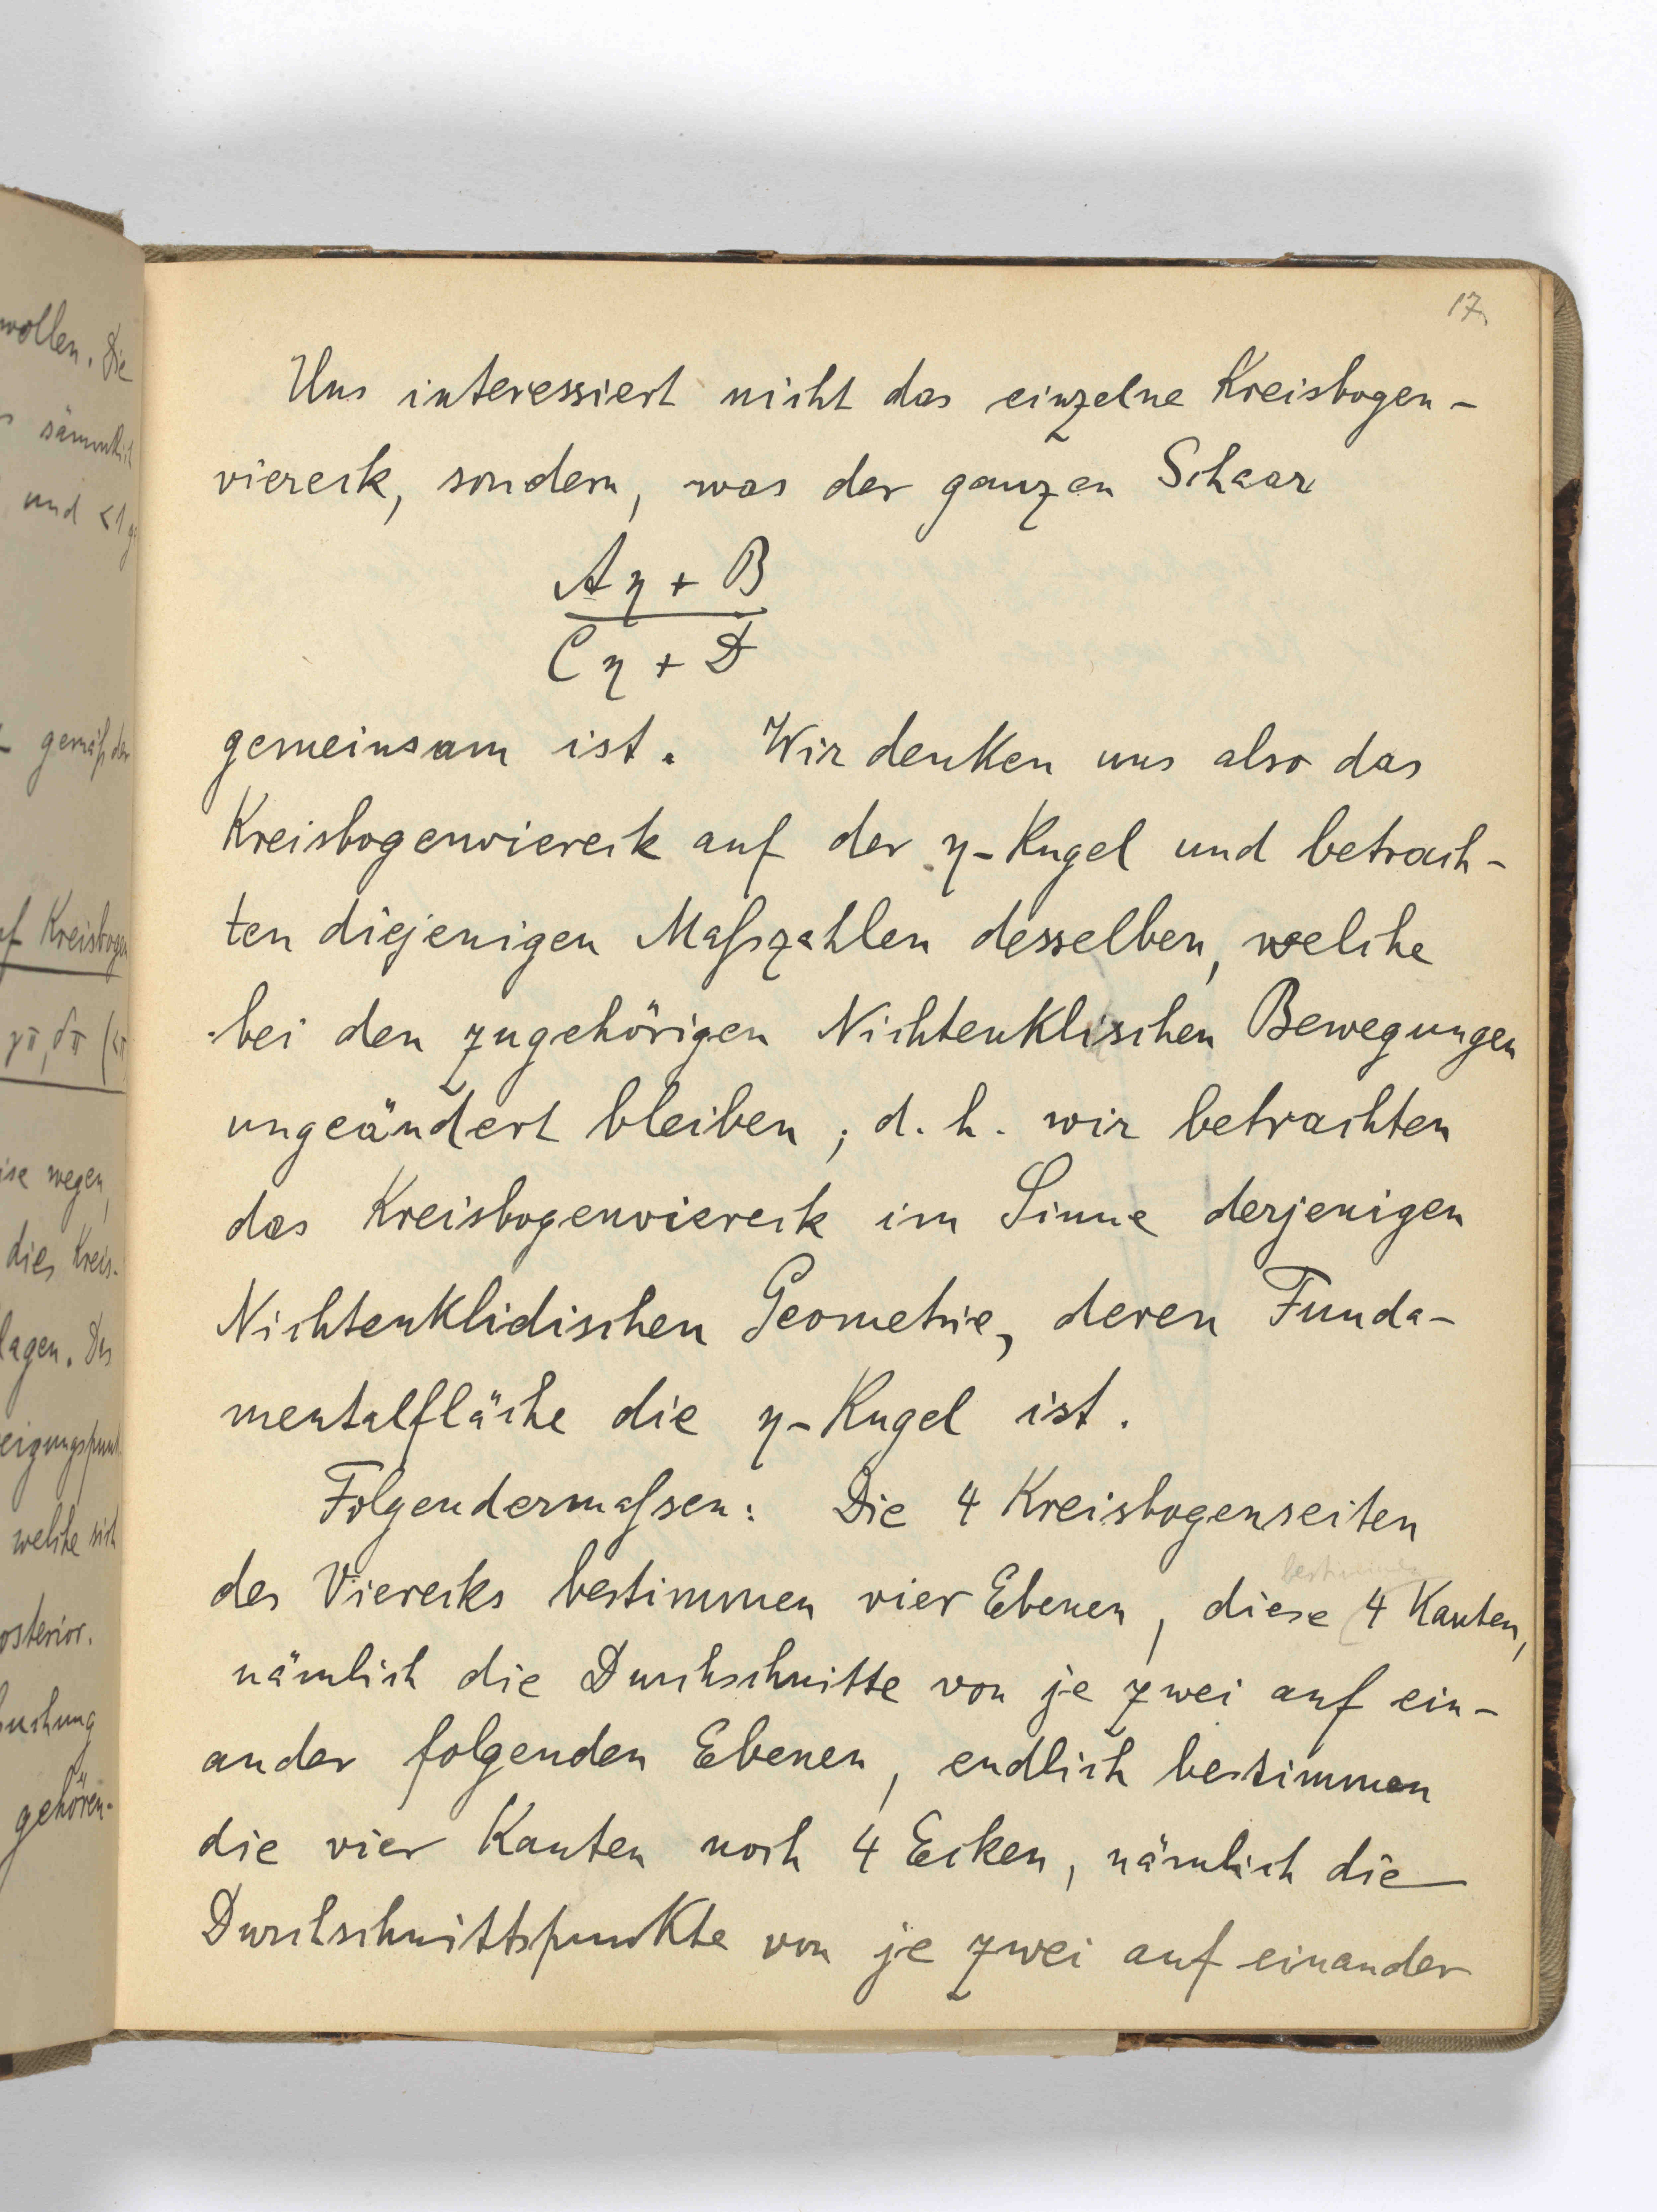 wollen. Die
sämmtlich
und <1
gemäß der
Kreisbogen
γπ, δπ
wegen,
dies Kreis-
welche sich
gehören-
17.
Uns interessiert nicht das einzelne Kreisbogen-
viereck, sondern, was der ganzen Schaar
Aη + B
Cη + D
gemeinsam ist. Wir denken uns also das
Kreisbogenviereck auf der η-Kugel und betrach-
ten diejenigen Maßzahlen desselben, welche
bei den zugehörigen Nichteuklischen Bewegungen
ungeändert bleiben, d. h. wir betrachten
das Kreisbogenviereck im Sinne derjenigen
Nichteuklidischen Geometrie, deren Funda-
mentalfläche die η-Kugel ist.
Folgendermaßen: Die 4 Kreisbogenseiten
bestimmen
des Vierecks bestimmen vier Ebenen, diese (4 Kanten,
nämlich die Durchschnitte von je zwei auf ein-
ander folgenden Ebenen, endlich bestimmen
die vier Kanten noch 4 Ecken, nämlich die
Durchschnittspunkte von je zwei auf einander